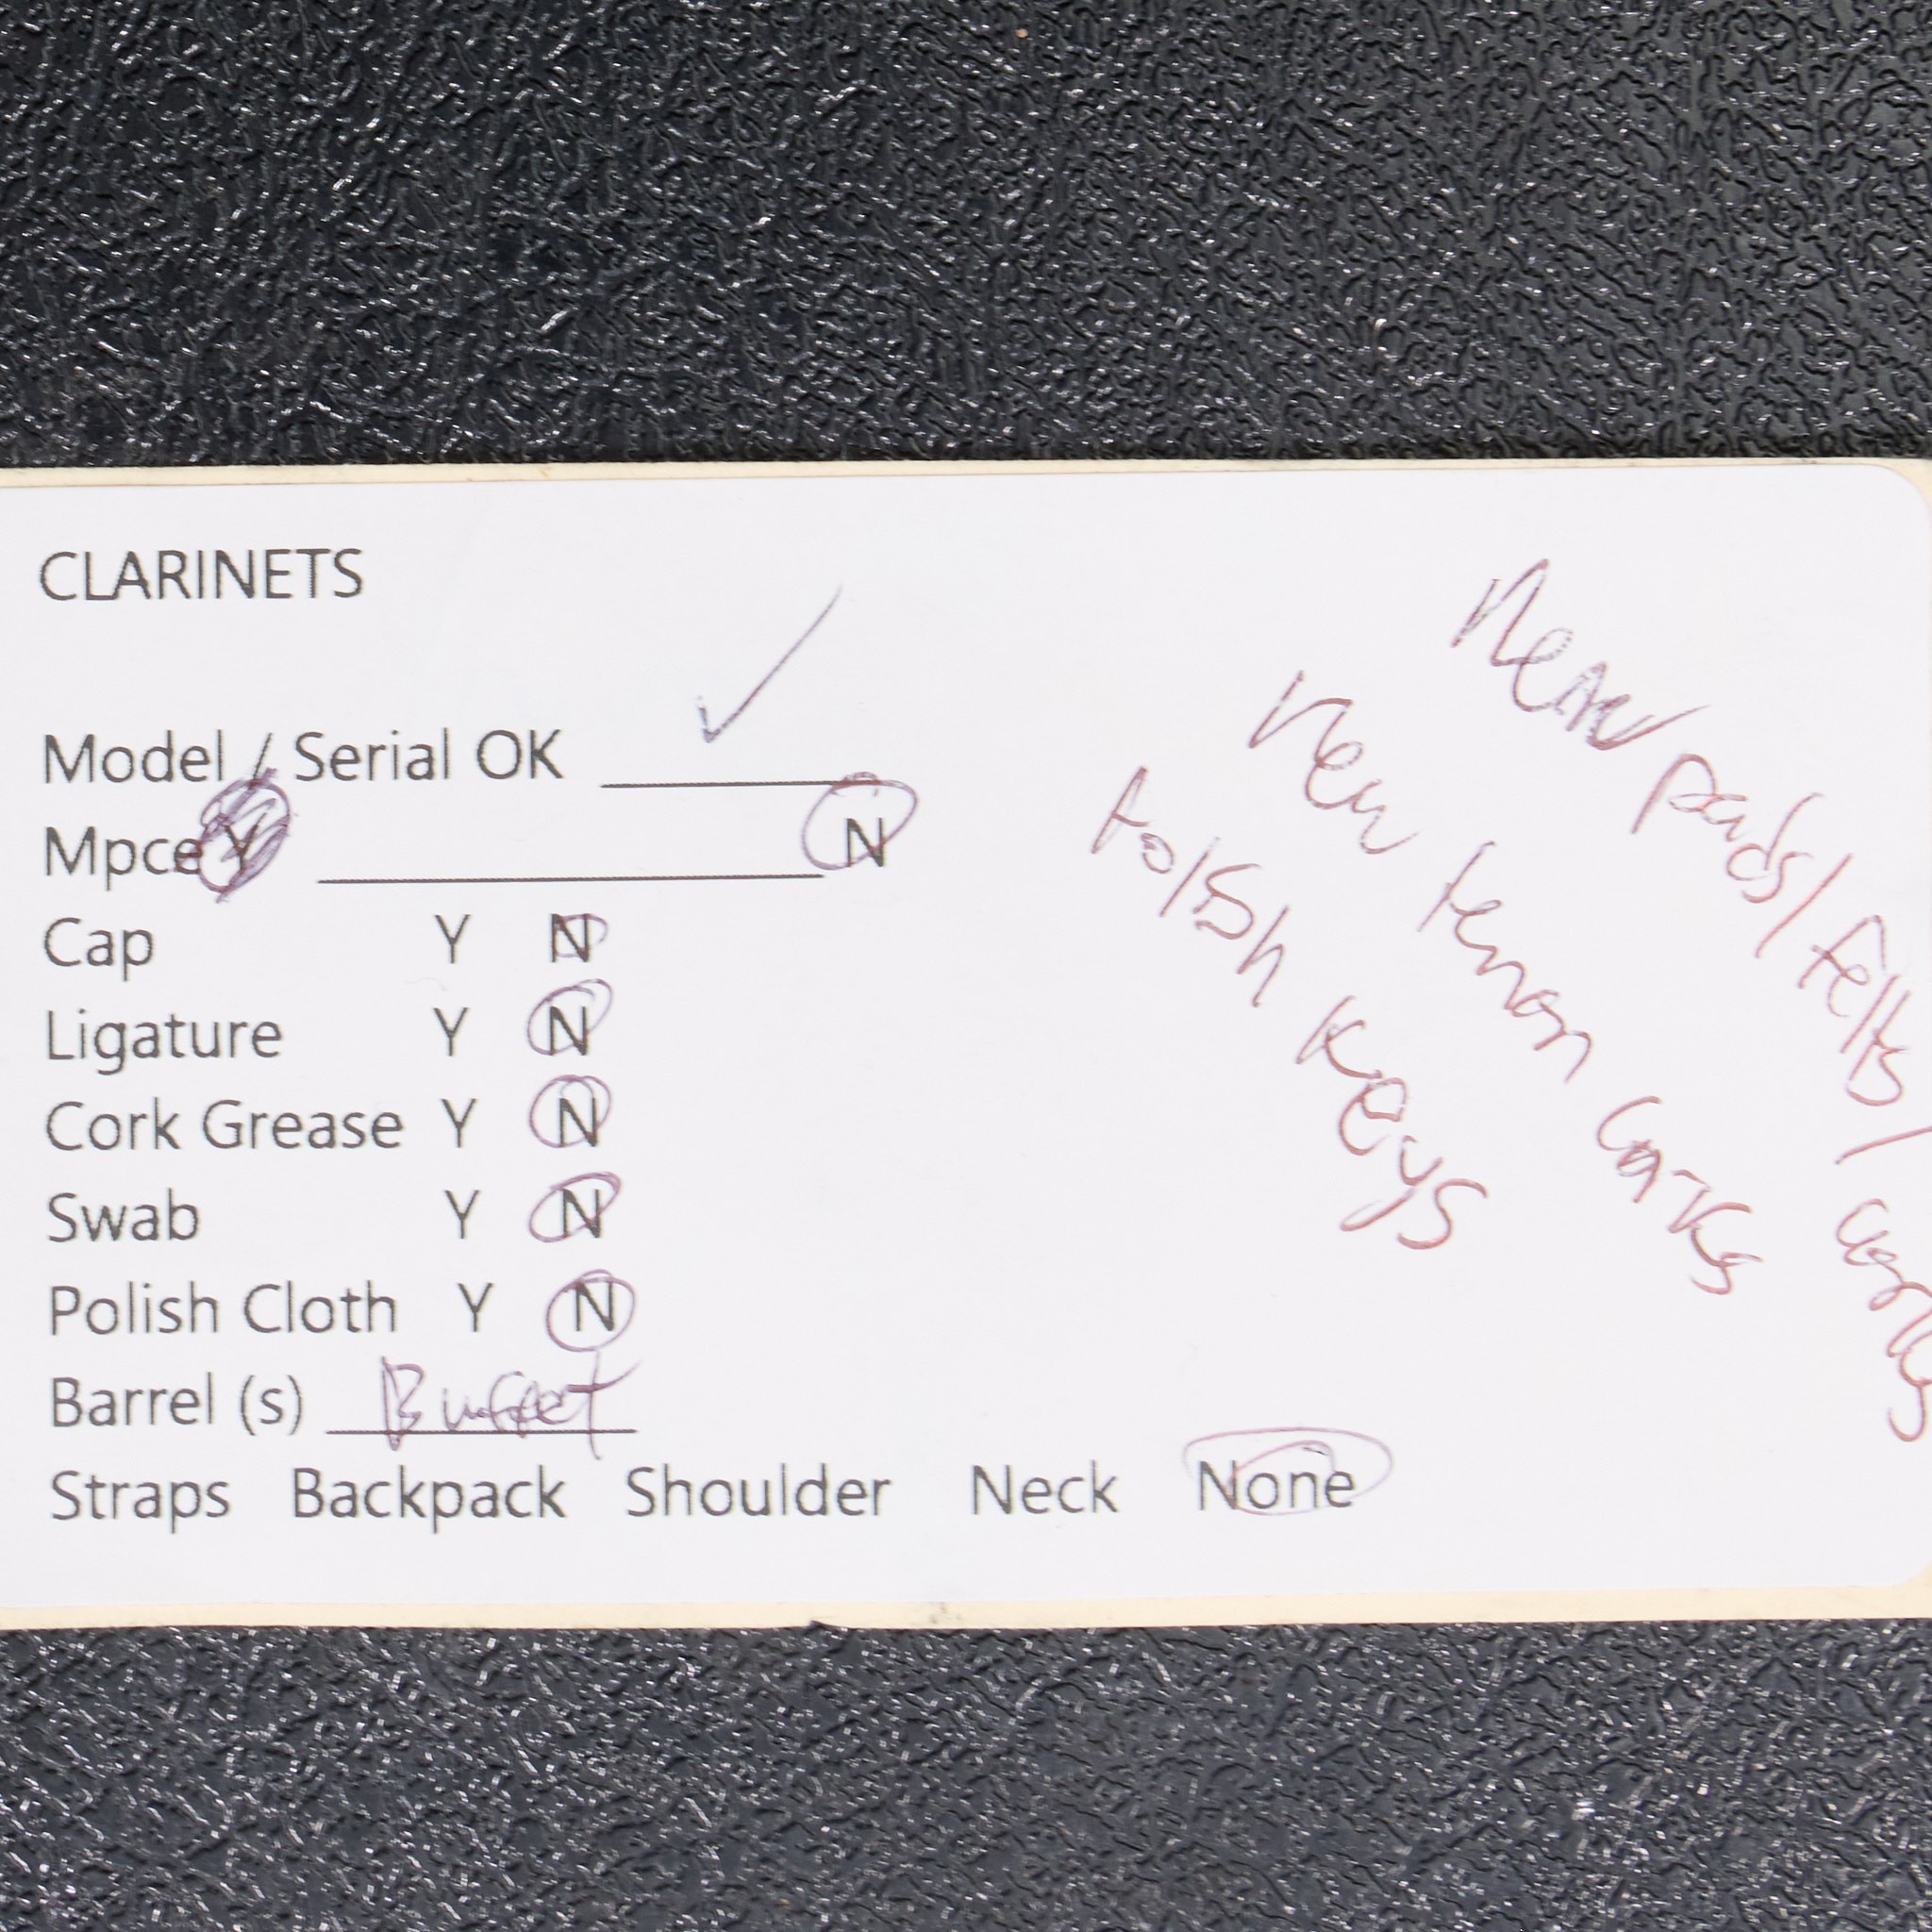 CLARINETS
Model / Serial OK ✓
Mpce Y N
Cap Y N
Ligature Y N
Cork Grease Y N
Swab Y N
Polish Cloth Y N
Barrel (s) Buffet
Straps Backpack Shoulder Neck None
New pads/felts/corks
New tenon corks
Polish Keys